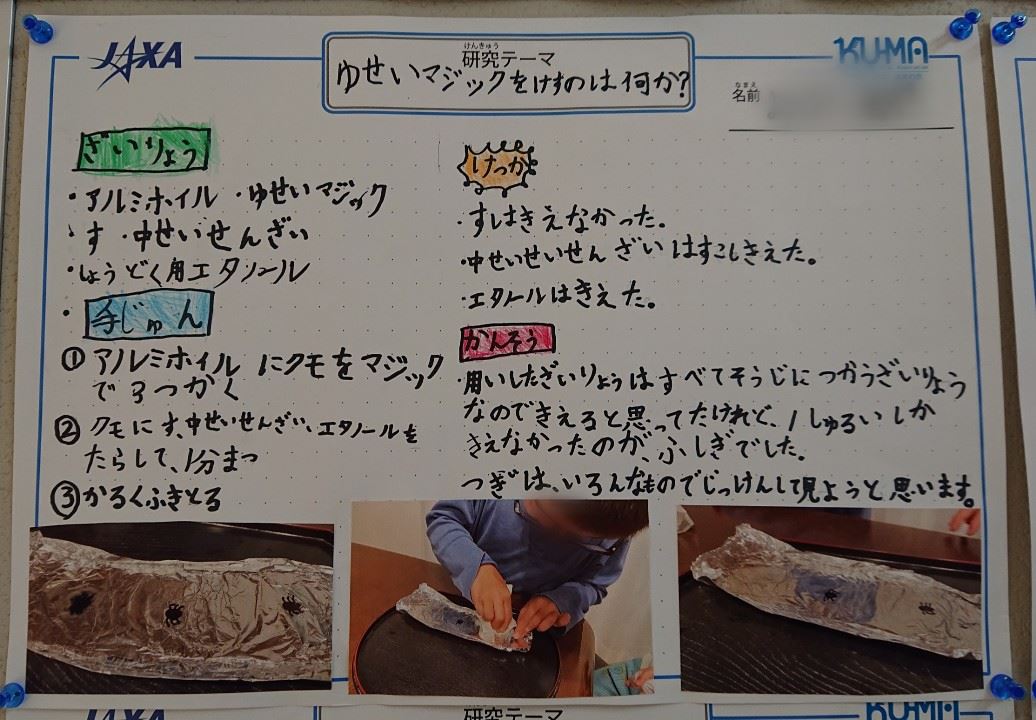 JAXA
けんきゅう
研究テーマ
ゆせいマジックをけすのは何か?
KUMA
なまえ
名前
ざいりょう
・アルミホイル ・ゆせいマジック
・す ・中せいせんざい
・しょうどく用エタノール
・手じゅん
①アルミホイルにクモをマジック
で3つかく
②クモにす、中せいせんざい、エタノールを
たらして、1分まつ
③かるくふきとる
けっか
・すはきえなかった。
・中せいせいせんざいはすこしきえた。
・エタノールはきえた。
かんそう
・用いしたざいりょうはすべてそうじにつかうざいりょう
なのできえると思ってたけれど、1しゅるいしか
きえなかったのが、ふしぎでした。
つぎは、いろんなものでじっけんして見ようと思います。
JAXA
研究テーマ
KUMA